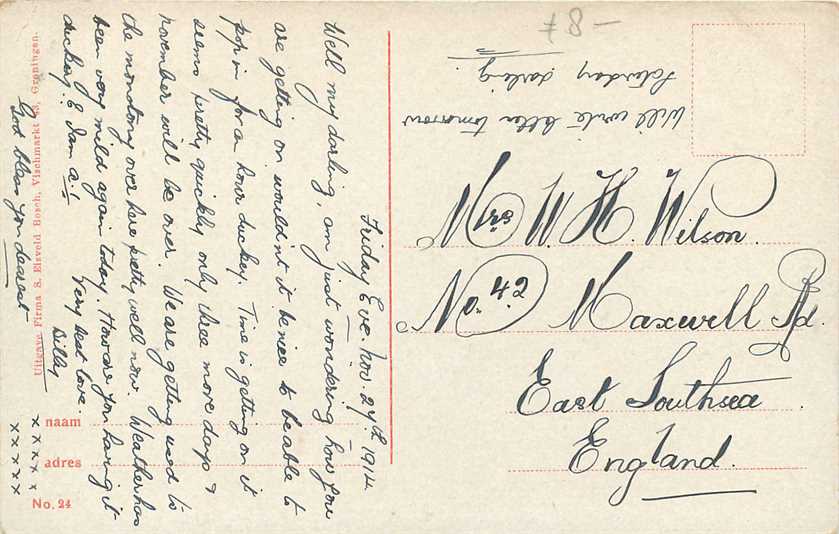 Friday Eve. Nov. 27th 1914
Well my darling, am just wondering how you
are getting on wouldn't it be nice to be able to
pop in for a hour duckey. Time is getting on it
seems pretty quickly only three more days &
november will be over. We are getting used to
the monotony over here pretty well now. Weather has
been very mild again today. How are you having it
duckey. E Dam a.1 Very best love.
God bless you dearest Billy
x x x x x
x x x x x
Will write letter tomorrow
Saturday darling.
Mrs W. H. Wilson.
No. 42 Maxwell Rd.
East Southsea
England.
# 8 -
Uitgave Firma S. Elsveld Bosch, Vischmarkt 43, Groningen.
naam
adres
No. 24